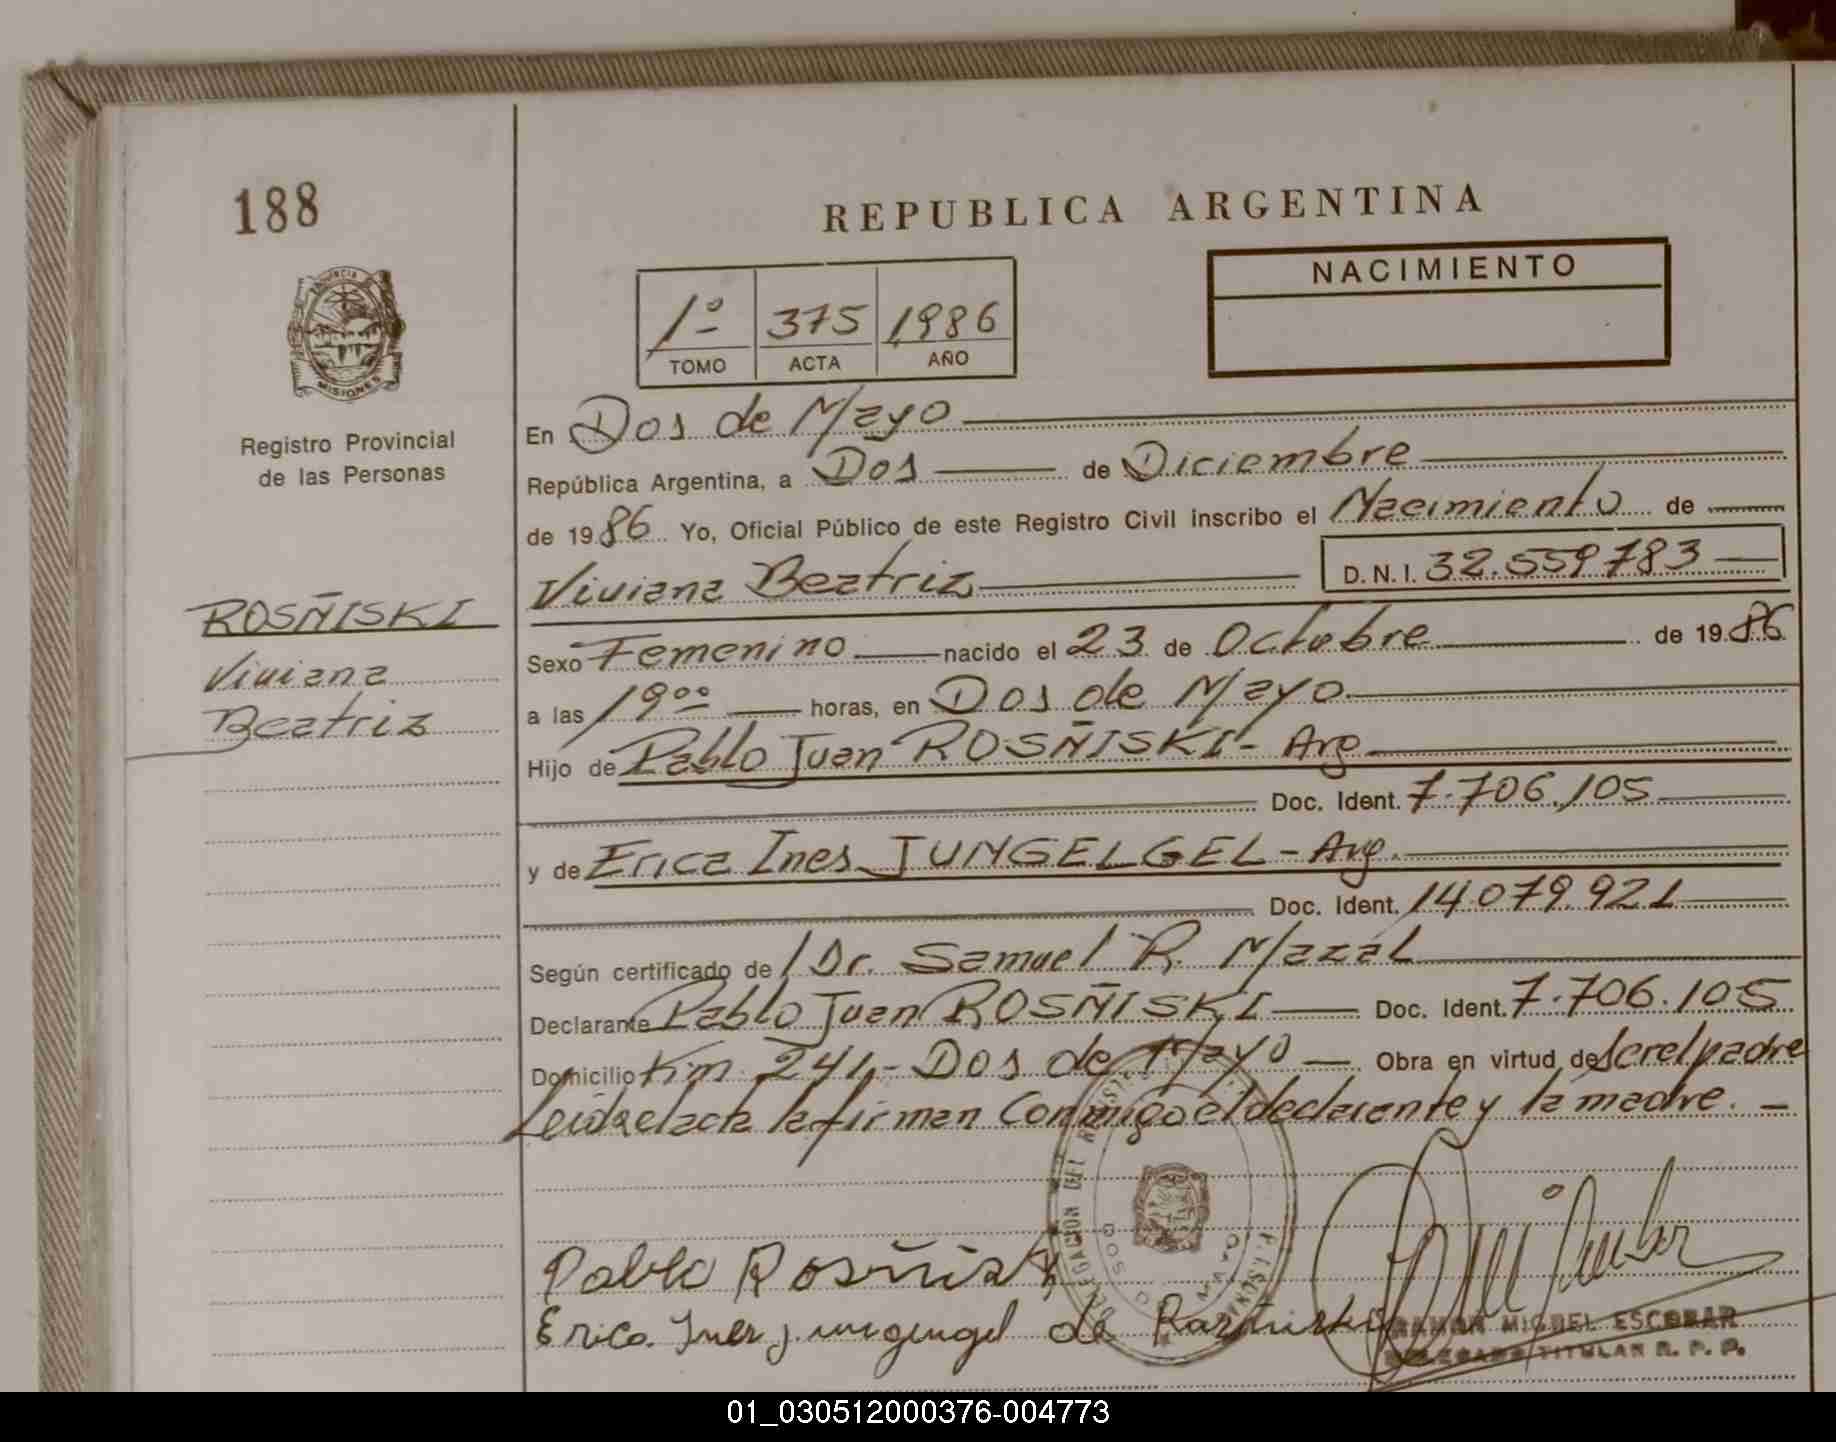 188
REPUBLICA ARGENTINA
NACIMIENTO
1º 375 1986
TOMO ACTA AÑO
PROVINCIA DE
MISIONES
Registro Provincial
de las Personas
En Dos de Mayo
República Argentina, a Dos de Diciembre
de 1986 Yo, Oficial Público de este Registro Civil inscribo el Nacimiento de
Viviana Beatriz D.N.I. 32.559.783
ROSÑISKI
Viviana
Beatriz
Sexo Femenino nacido el 23 de Octubre de 1986
a las 19ºº horas, en Dos de Mayo
Hijo de Pablo Juan ROSÑISKI - Arg.
Doc. Ident. 7.706.105
y de Erica Ines JUNGELGEL - Arg.
Doc. Ident. 14.079.921
Según certificado de Dr. Samuel R. Mazal
Declarante Pablo Juan ROSÑISKI Doc. Ident. 7.706.105
Domicilio Km. 241 - Dos de Mayo Obra en virtud de ser el padre
Leida el acta la firman conmigo el declarante y la madre.
DELEGACION DEL REGISTRO
Pablo Rosñiski
Erica Ines de Rosñiski
RAMON MIGUEL ESCOBAR
DELEGADO TITULAR R. P. P.
01_030512000376-004773